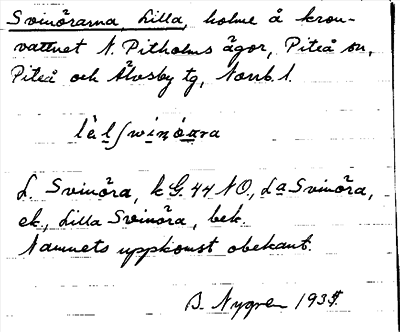 Svinörarna, Lilla, holme å kron-
vattnet N. Pitholms ägor, Piteå sn,
Piteå och Älvsby tg, Norrb. l.
lèlʃwinóara
L. Svinöra, k G. 44 NO., La Svinöra,
ek., Lilla Svinöra, bek.
Namnets uppkomst obekant.
B. Nygren 1935.